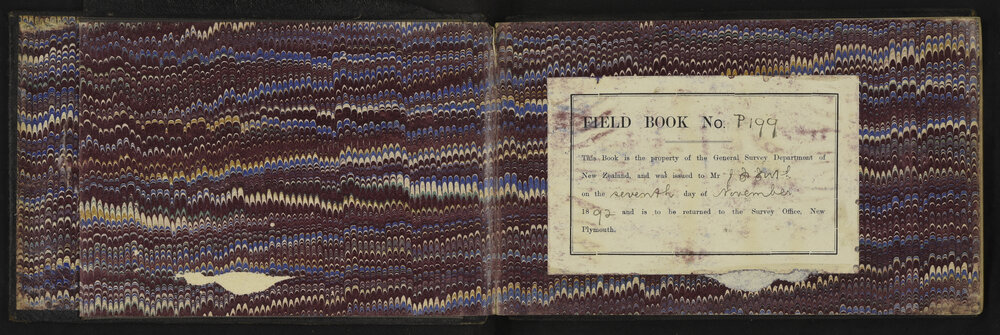 FIELD BOOK No. P199
This Book is the property of the General Survey Department of
New Zealand, and was issued to Mr
on the seventh day of November
1892 and is to be returned to the Survey Office, New
Plymouth.